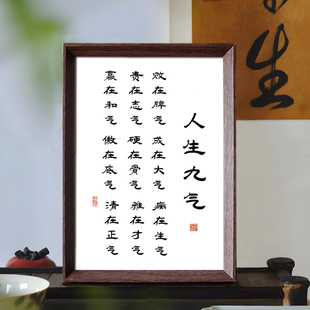 人生九气
败在脾气 成在大气 病在生气
贵在志气 硬在骨气 雅在才气
赢在和气 傲在底气 清在正气
生